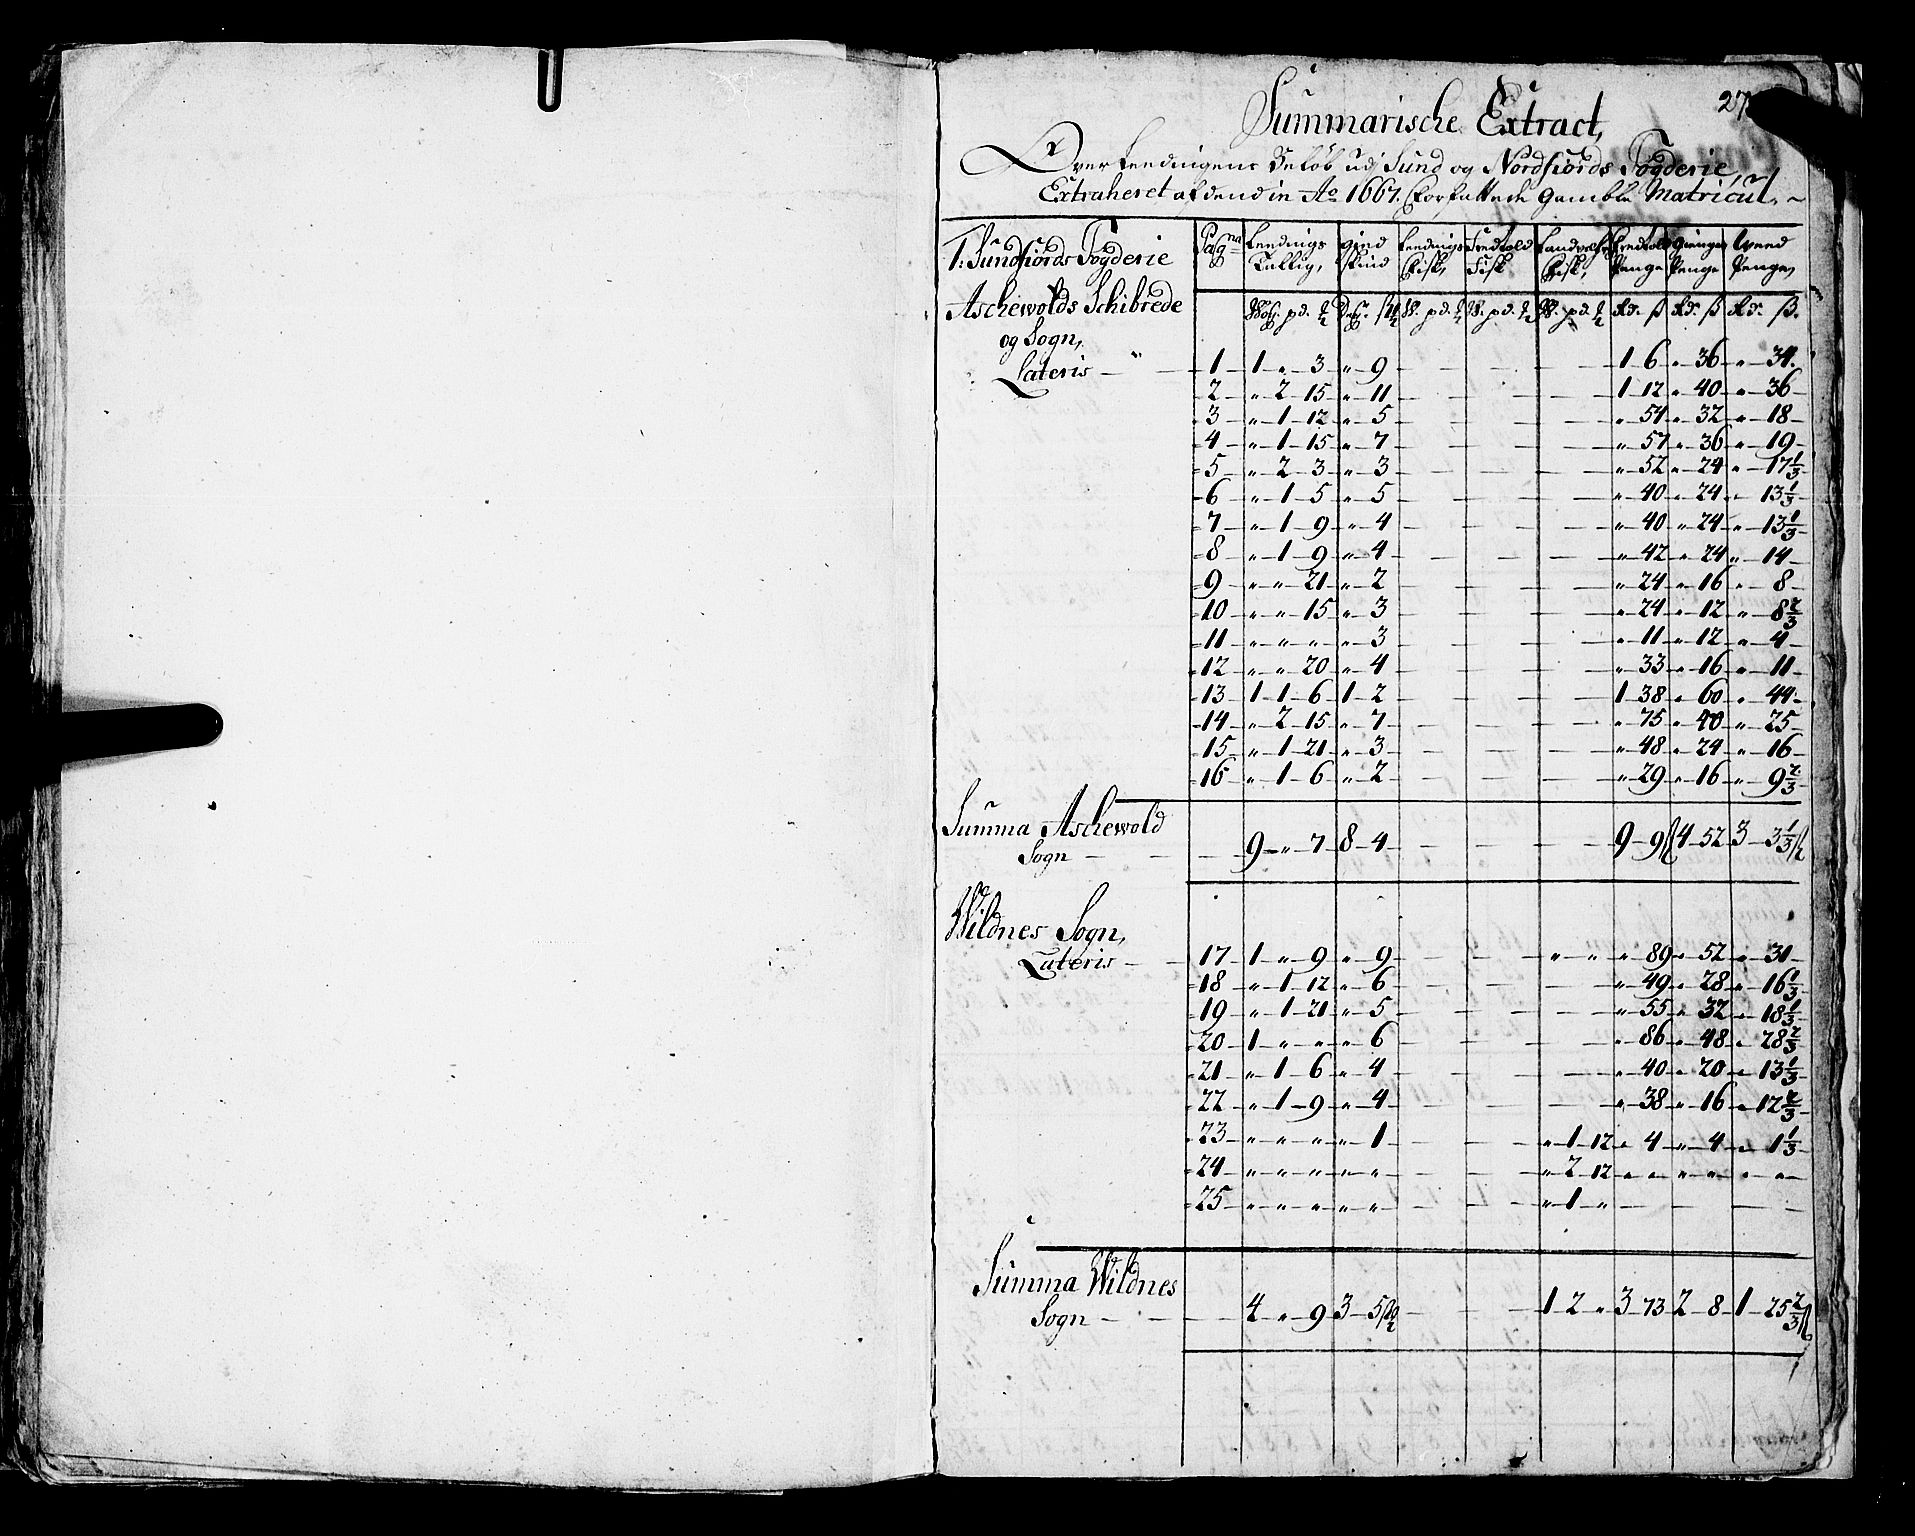 27
Summarische Extract,
Over Leedningens Beløb udj Sund og Nordfiords Fogderie,
Extraheret af dend in Ao 1667. Forfattede gamble Matricul.
1: Sundfiords Fogderie Pagna Leednings Tallig, gied skind Leednings Fisk, Fisk Fisk, Penge Penge Penge,
Aschewolds Schibrede pd. pd. pd. pd. Rd. ß Rd. ß Rd. ß.
og Sogn,
Lateris — " — 1 — 1 " 3 " 9 — — — 1 6 " 36 " 34
2 — " 2 15 " 11 — — — 1 12 " 40 " 36
3 — " 1 12 " 5 — — — " 54 " 32 " 18
4 — " 1 15 " 7 — — — " 57 " 36 " 19
5 — " 2 3 " 3 — — — " 52 " 24 " 17 1/3
6 — " 1 5 " 5 — — — " 40 " 24 " 13 1/3
7 — " 1 9 " 4 — — — " 40 " 24 " 13 1/3
8 — " 1 9 " 4 — — — " 42 " 24 " 14
9 — " " 21 " 2 — — — " 24 " 16 " 8
10 — " " 15 " 3 — — — " 24 " 12 " 8 2/3
11 — " " " " 3 — — — " 11 " 12 " 4
12 — " " 20 " 4 — — — " 33 " 16 " 11
13 — 1 1 6 1 2 — — — 1 38 " 60 " 44
14 — " 2 15 " 7 — — — " 75 " 40 " 25
15 — " 1 21 " 3 — — — " 48 " 24 " 16
16 — " 1 6 " 2 — — — " 29 " 16 " 9 2/3
Summa Aschewold
Sogn — — — 9 " 7 8 4 — — — 9 9 4 52 3 3 1/3
Wildnes Sogn,
Lateris — — 17 — 1 " 9 " 9 — — " " " 89 " 52 " 31
18 — " 1 12 " 6 — — — " 49 " 28 " 16 1/3
19 — " 1 21 " 5 — — — " 55 " 32 " 18 1/3
20 — 1 " " " 6 — — — " 86 " 48 " 28 2/3
21 — " 1 6 " 4 — — — " 40 " 20 " 13 1/3
22 — " 1 9 " 4 — — — " 38 " 16 " 12 2/3
23 — " " " " 1 — — " 1 12 " 4 " 4 " 1 1/3
24 — " " " " " — — " 2 12 " " " " " "
25 — " " " " " — — " 1 " — — —
Summa Wildnes
Sogn — — — 4 " 9 3 5 — — 1 2 " 3 73 2 8 1 25 2/3